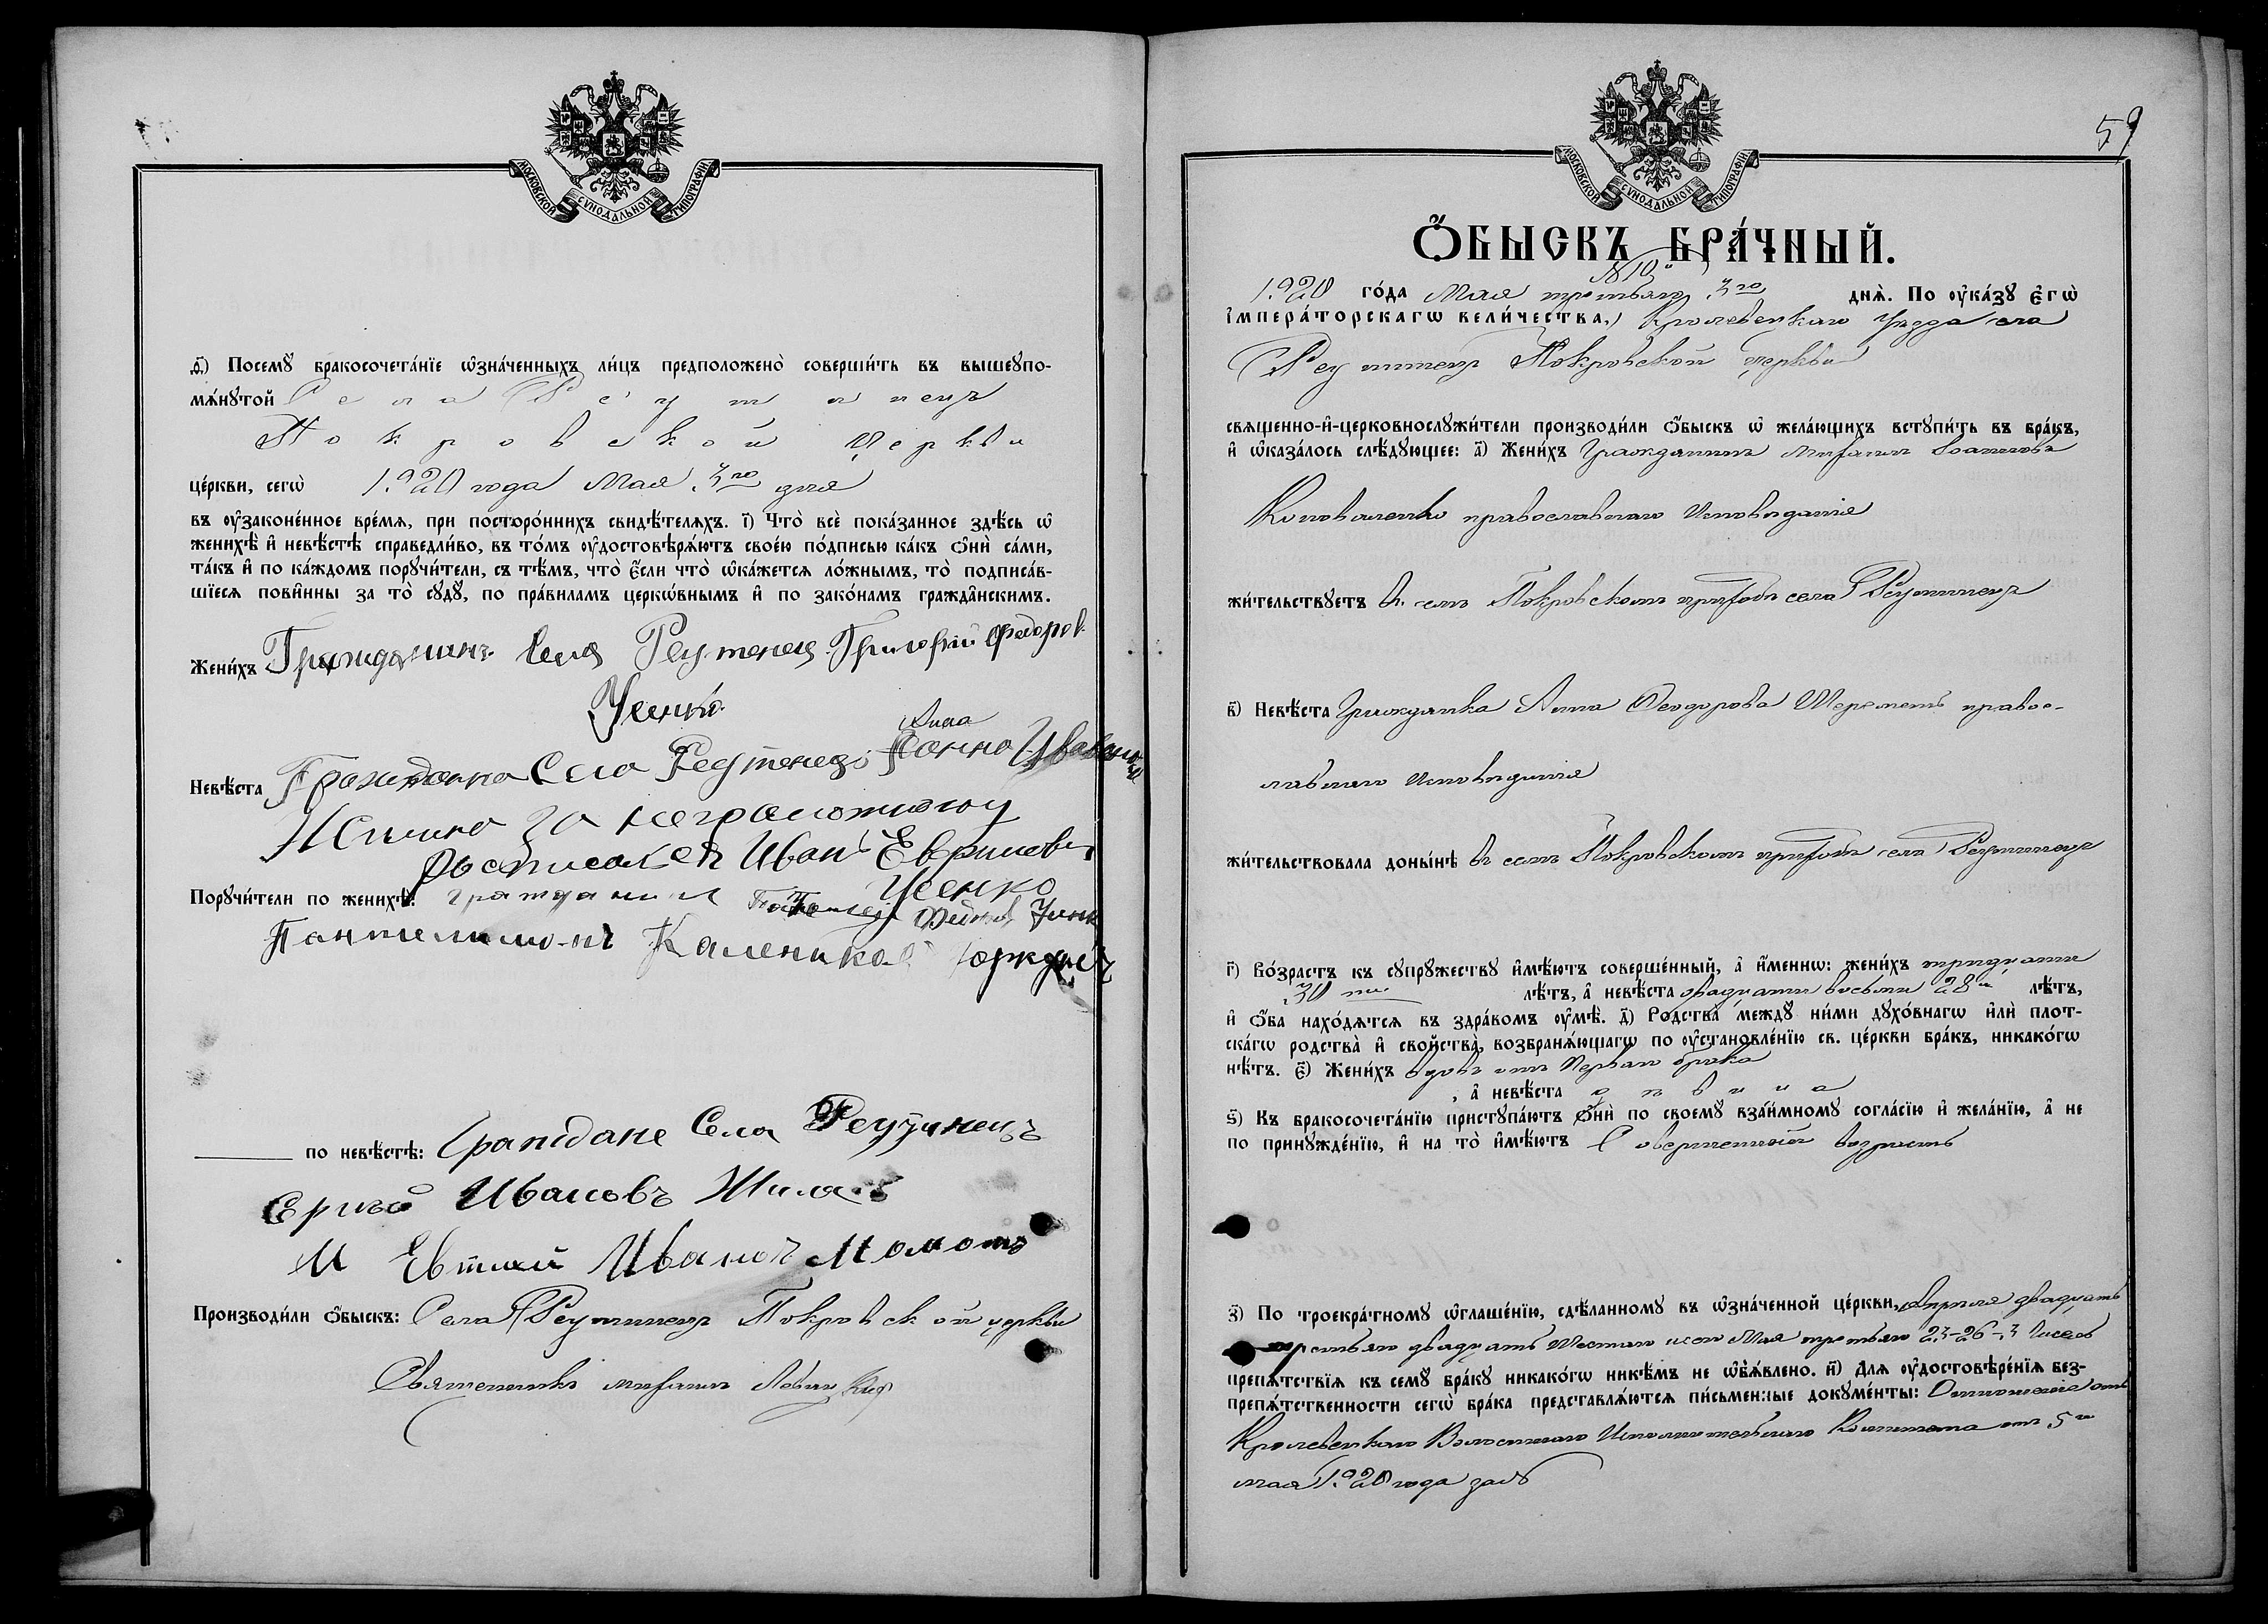 МОСКОВСКОЙ СѴНОДАЛЬНОЙ ТИПОГРАФІИ
д҃) Посемꙋ̀ бракосочета́нїе ѡ҆зна́ченныхъ ли́цъ предположено̀ соверши́ть въ вышеꙋпо-
мѧ́нꙋтой Села Реутинецъ
Покровской Церкви
це́ркви, сегѡ̀ 1920 года Мая 3го дня
въ оу҆зако́ненное вре́мѧ, при посторо́ннихъ свидѣ́телѧхъ. і҃) Что̀ всѐ пока́занное здѣ́сь ѡ҆
женихѣ̀ и҆ невѣ́стѣ справедли́во, въ то́мъ оу҆достовѣрѧ́ютъ свое́ю по́дписью ка́къ ѻ҆нѝ са́ми,
та́къ и҆ по ка́ждомъ порꙋчи́тели, съ тѣ́мъ, что̀ є҆́сли что̀ ѡ҆ка́жетсѧ ло́жнымъ, то̀ подписа́в-
шїесѧ пови́нны за то̀ сꙋдꙋ̀, по пра́виламъ церко́внымъ и҆ по зако́намъ гражда́нскимъ.
Жени́хъ Гражданинъ Села Реутенец Григорій Федоров
Усенко
Анна
Невѣ́ста Гражданка Села Реутенец
за неграмотною
росписался Иванъ
Усенко
Порꙋчи́тели по женихѣ̀: гражданин
Пантелимонъ Калеников
по невѣ́стѣ: Граждане Села Реутинецъ
Ивановъ
И Евтихій Иванов Момотъ
Производи́ли ѻ҆́быскъ: Села Реутинецъ Покровской церкви
Священникъ Михаилъ
59
МОСКОВСКОЙ СѴНОДАЛЬНОЙ ТИПОГРАФІИ
Ѻ҆́БЫСКЪ БРА́ЧНЫЙ.
№ 10й
1920 го́да Мая третьяго 3го днѧ̀. По оу҆ка́зꙋ є҆гѡ̀
і҆мпера́торскагѡ вели́чества, Кролевецкаго Уѣзда села
Реутинецъ Покровской церкви
свѧщенно-и҆-церковнослꙋжи́тели производи́ли ѻ҆́быскъ ѡ҆ жела́ющихъ встꙋпи́ть въ бра́къ,
и҆ ѡ҆каза́лось слѣ́дꙋющее: а҃) Жени́хъ Гражданинъ Михаилъ Іоанновъ
Коноваленко православнаго Исповѣданія
жи́тельствꙋетъ въ семъ Покровскомъ приходѣ села Реутинецъ
в҃) Невѣ́ста Гражданка Анна Феодорова Шереметъ правос-
лавнаго Исповѣданія
жи́тельствовала доны́нѣ въ семъ Покровскомъ приходѣ села Реутинецъ
г҃) Во́зрастъ къ сꙋпрꙋ́жествꙋ и҆мѣ́ютъ соверше́нный, а҆ и҆́менно: жени́хъ тридцати
30ти лѣ́тъ, а҆ невѣ́ста двадцати восьми 28и лѣ́тъ,
и҆ ѻ҆́ба нахо́дѧтсѧ въ здра́вомъ оу҆мѣ̀. д҃) Родства̀ междꙋ̀ ни́ми дꙋхо́внагѡ и҆лѝ плот-
ска́гѡ родства̀ и҆ сво́йства, возбранѧ́ющагѡ по оу҆становле́нїю св. це́ркви бра́къ, никако́гѡ
нѣ́тъ. є҃) Жени́хъ вдовъ отъ Перваго брака
, а҆ невѣ́ста дѣвица
ѕ҃) Къ бракосочета́нїю пристꙋпа́ютъ ѻ҆нѝ по своемꙋ̀ взаи́мномꙋ согла́сїю и҆ жела́нїю, а҆ не
по принꙋжде́нїю, и҆ на то̀ и҆мѣ́ютъ Совершенный возрастъ
з҃) По троекра́тномꙋ ѡ҆глаше́нїю, сдѣ́ланномꙋ въ ѡ҆зна́ченной це́ркви, Апрѣля двадцать
третьяго двадцать Шестаго Мая третьяго 23-26-3 Чиселъ
препѧ́тствїѧ къ семꙋ̀ бра́кꙋ никако́гѡ никѣ́мъ не ѡ҆б̾ѧ́влено. и҃) Для оу҆достовѣре́нїѧ без-
препѧ́тственности сегѡ̀ бра́ка представлѧ́ютсѧ пи́сьменные докꙋме́нты: Отношеніе отъ
Кролевецкаго Волостнаго Исполнительнаго Комитета отъ 5го
мая 1920 года за №